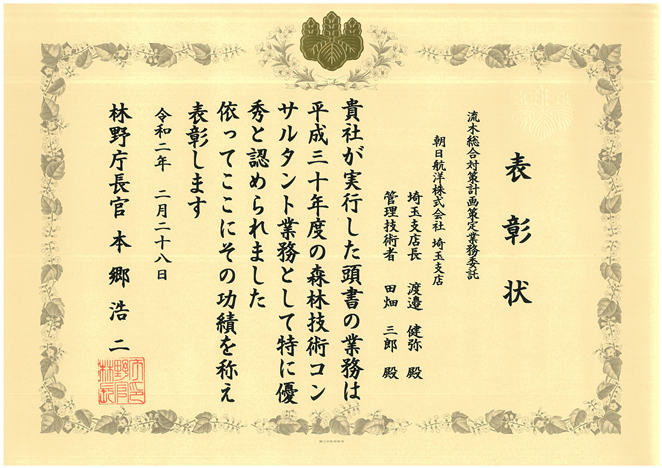 表彰状
流木総合対策計画策定業務委託
朝日航洋株式会社 埼玉支店
埼玉支店長 渡邉 健弥 殿
管理技術者 田畑 三郎 殿
貴社が実行した頭書の業務は
平成三十年度の森林技術コン
サルタント業務として特に優
秀と認められました
依ってここにその功績を称え
表彰します
令和二年 二月二十八日
林野庁長官 本郷浩二